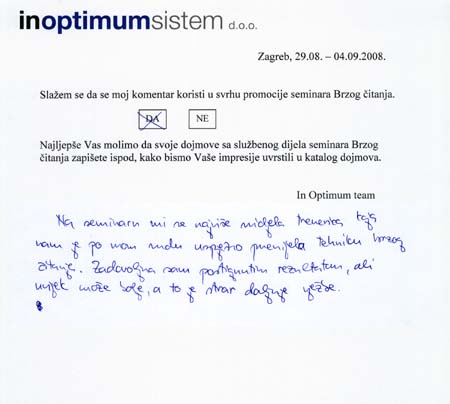 inoptimumsistem d.o.o.
Zagreb, 29.08. – 04.09.2008.
Slažem se da se moj komentar koristi u svrhu promocije seminara Brzog čitanja.
DA NE
Najljepše Vas molimo da svoje dojmove sa službenog dijela seminara Brzog
čitanja zapišete ispod, kako bismo Vaše impresije uvrstili u katalog dojmova.
In Optimum team
Na seminaru mi se najviše svidjela trenerica koja
nam je po mom sudu uspješno prenijela tehniku brzog
čitanja. Zadovoljna sam postignutim rezultatom, ali
uvijek može bolje, a to je stvar daljnje vježbe.